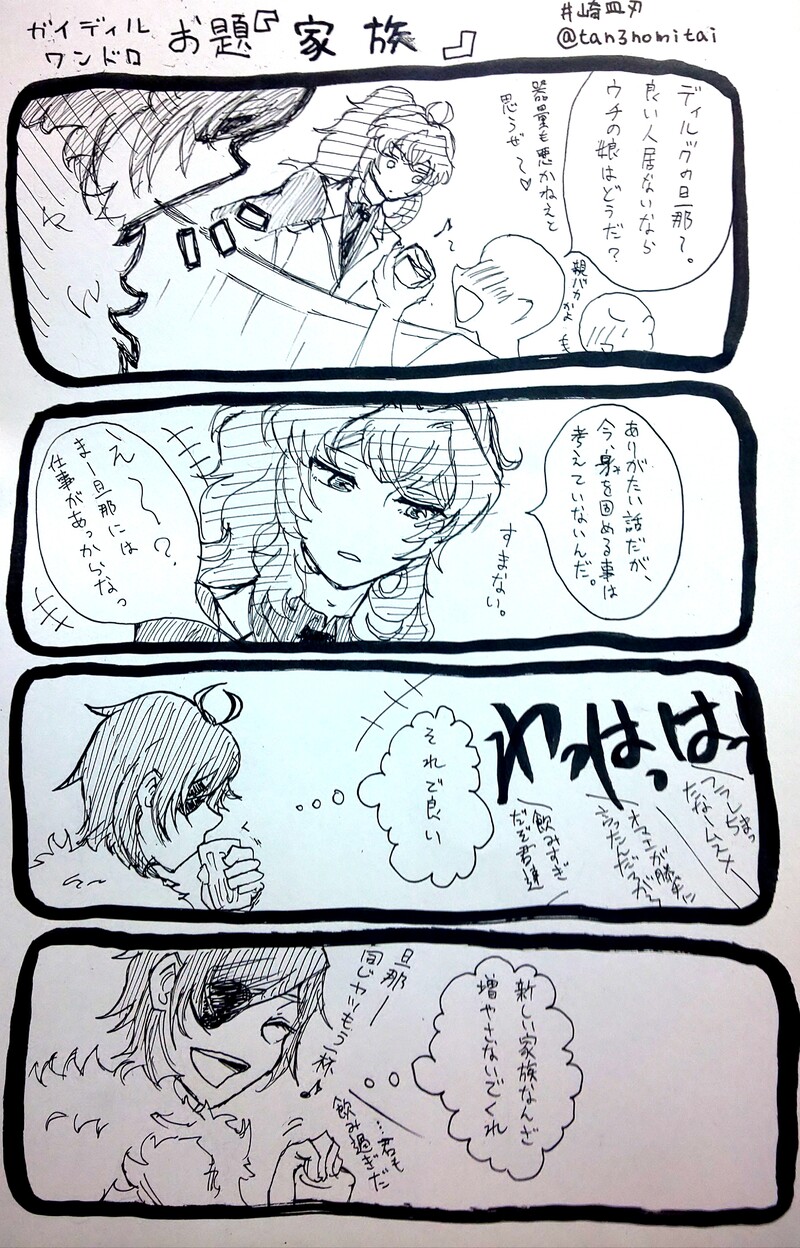 ガイディル
ワンドロ
お題『家族』
#崎皿刃
@tan3nomitai
ディルックの旦那～。
良い人居ないなら
ウチの娘はどうだ?
器量も悪かねえと
思うぜ～♡
親バカかよ
ありがたい話だが、
今、身を固める事は
考えていないんだ。
すまない。
え～～?
まー旦那には
仕事があっからなっ
わっはっはっ
フラれちまっ
たなームスメー
オマエが勝手に
言ったんだろがっ
飲みすぎ
だぞ君達
それで良い
新しい家族なんざ
増やさないでくれ
旦那ー
同じヤツもう一杯♪
…君も
飲み過ぎだ